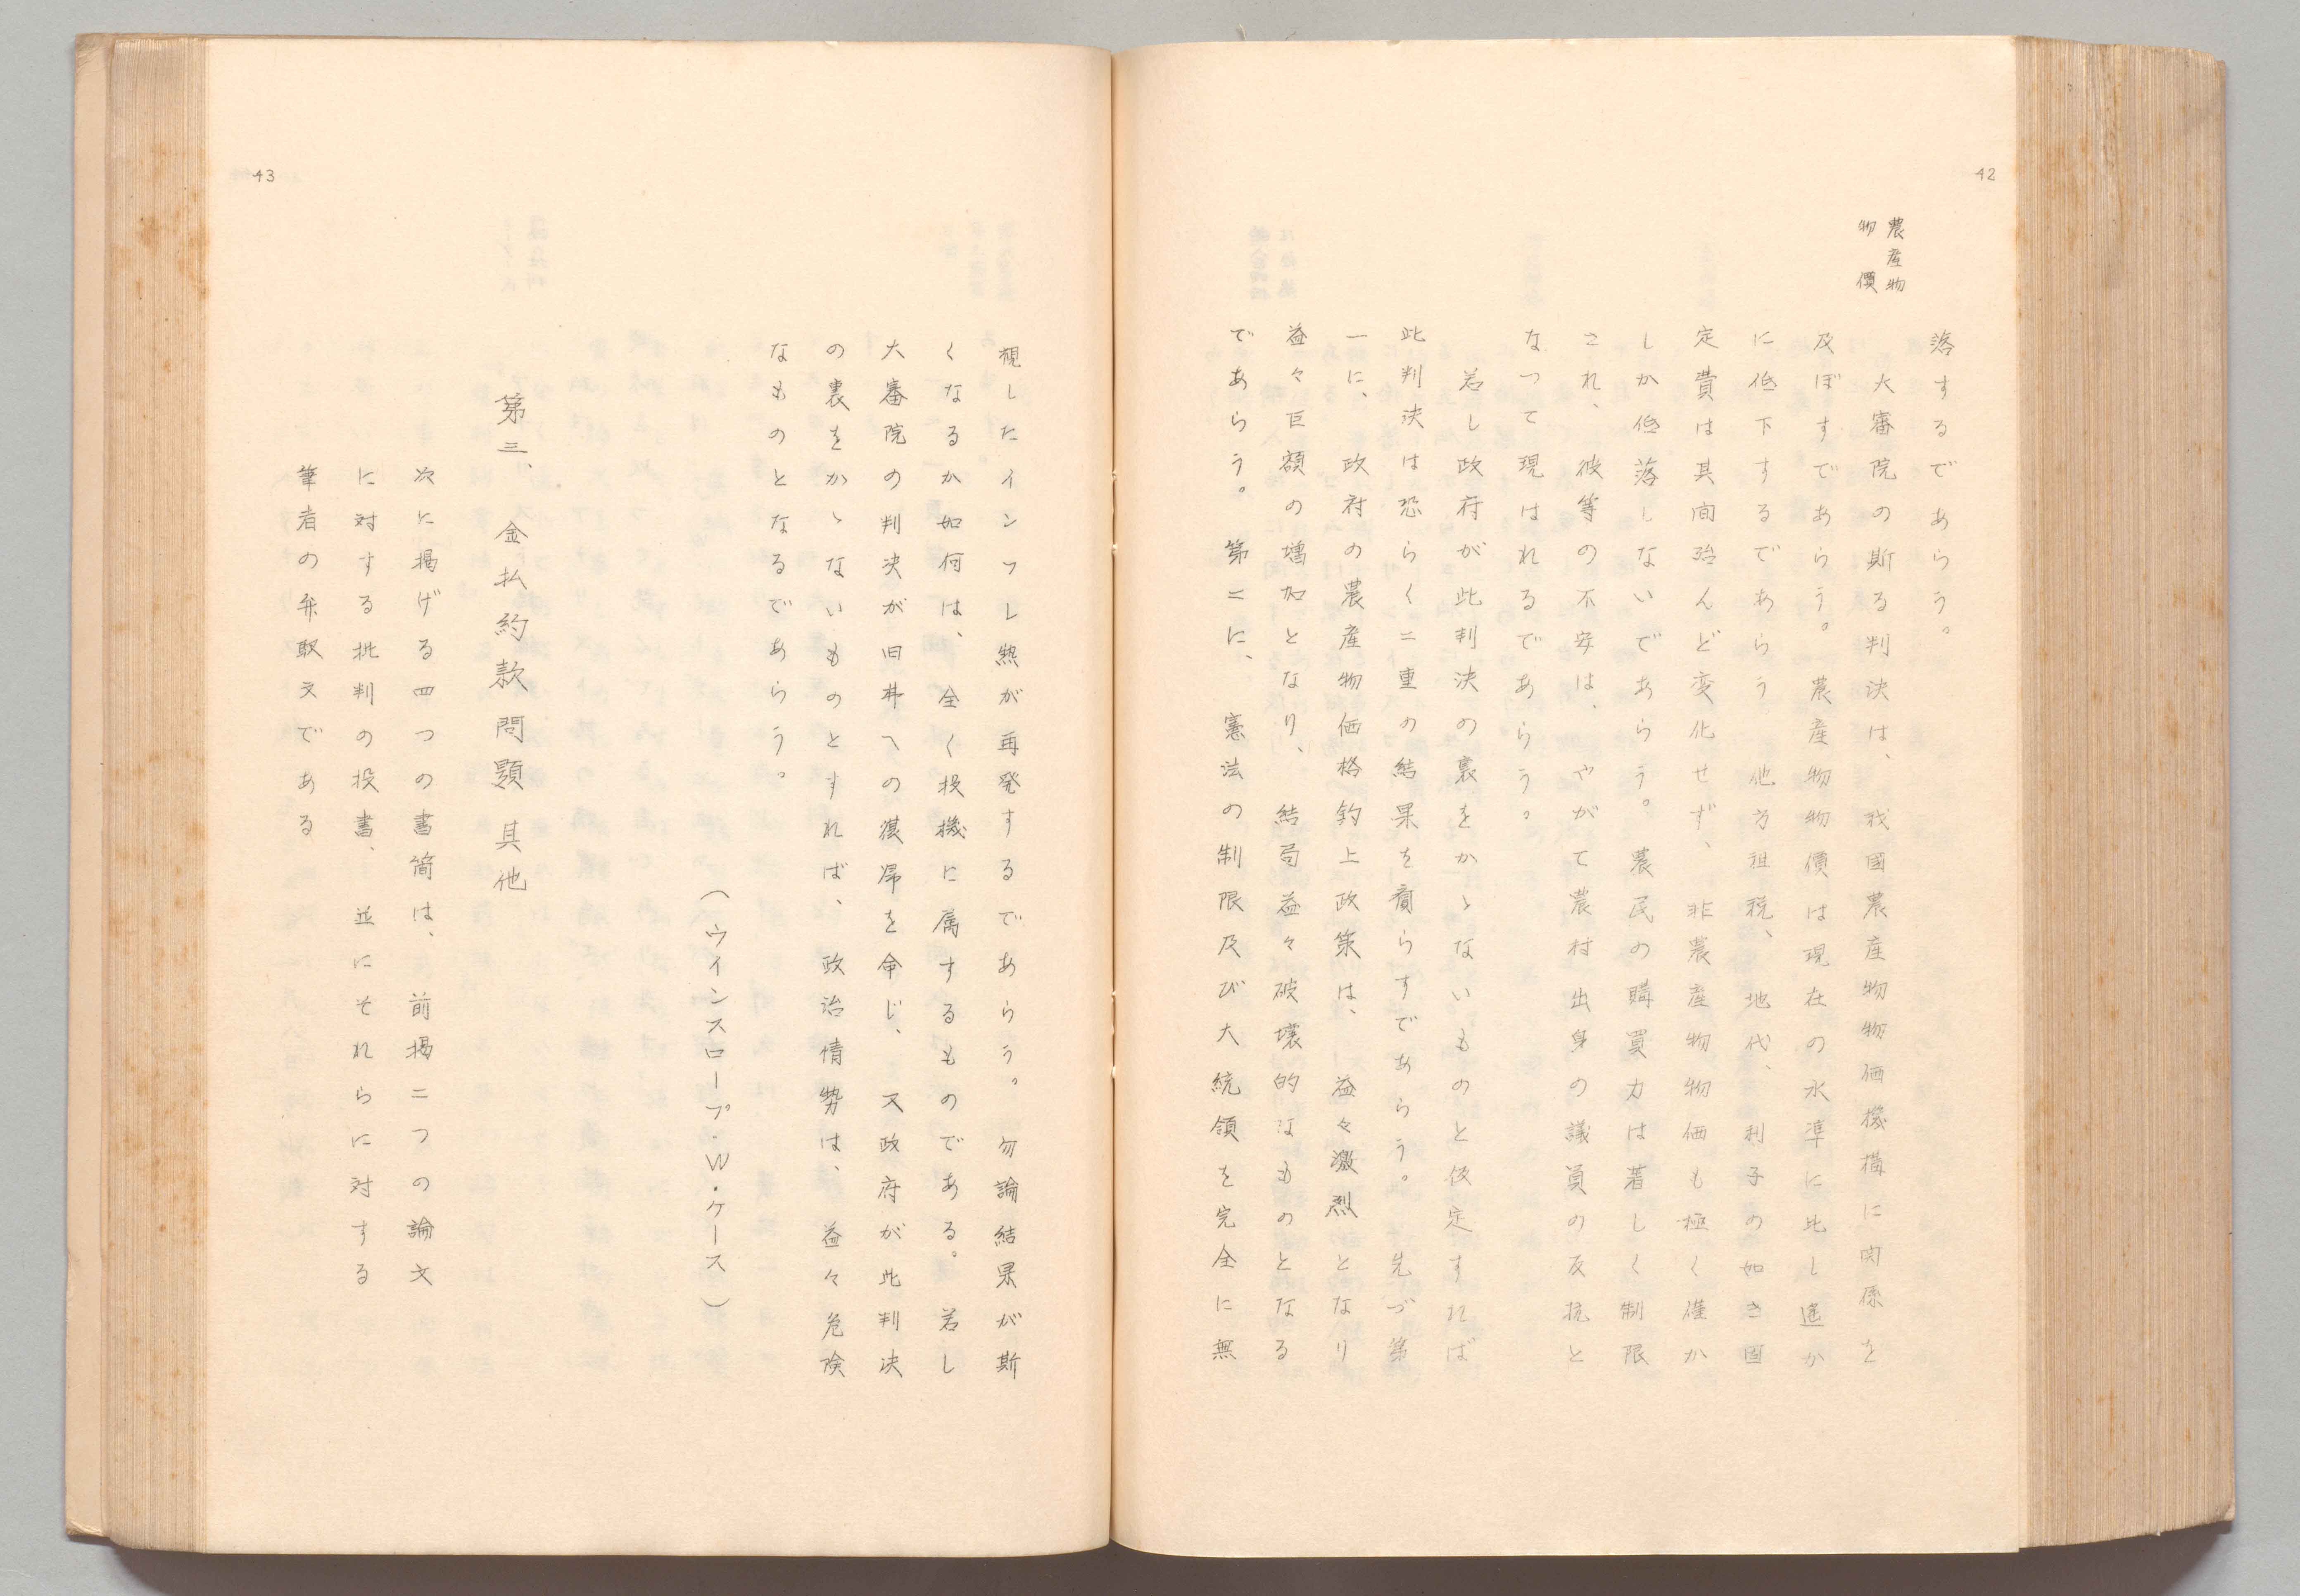 42
農産物
物價
落するであらう。
大審院の斯る判決は、我國農産物物価機構に関係を
及ぼすであらう。農産物物價は現在の水準に比し遙か
に低下するであらう　他方租税、地代、利子の如き固
定費は其间殆んど変化せず、非農産物物価も極く僅か
しか低落しないであらう。農民の購買力は著しく制限
され、彼等の不安は、やがて農村出身の議員の反抗と
なつて現はれるであらう。
若し政府が此判決の裏をかゝないものと仮定すれば
此判決は恐らく二重の結果を齎らすであらう。先づ第
一に、政府の農産物価格釣上政策は、益々激烈となり
益々巨額の増加となり、結局益々破壊的なものとなる
であらう。第二に、憲法の制限及び大統領を完全に無
43
視したインフレ熱が再発するであらう。勿論結果が斯
くなるか如何は、全く投機に属するものである。若し
大審院の判決が旧弗への復帰を命じ、又政府が此判決
の裏をかゝないものとすれば、政治情勢は、益々危険
なものとなるであらう。
（ウインスロープ・W・ケース）
第三、金払約款問題其他
次に掲げる四つの書简は、前掲二つの論文
に対する批判の投書、並にそれらに対する
筆者の弁駁文である